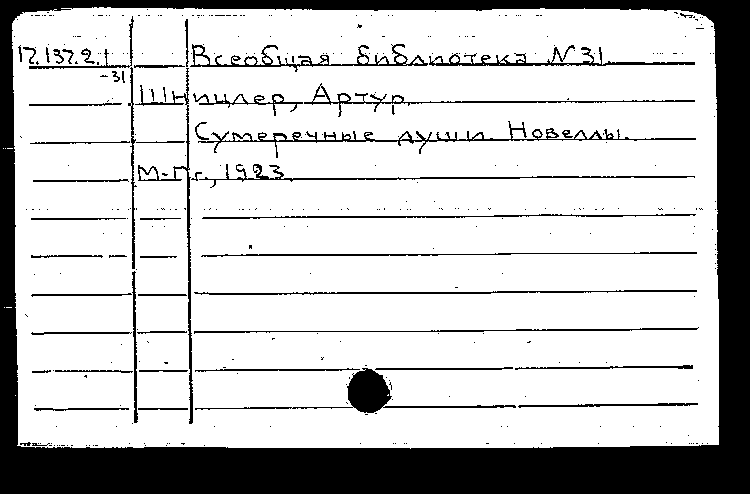 17.137.2.1 Всеобщая библиотека N31
-31
Шницлер, Артур.
Сумеречные души. Новеллы.
М-Пг., 1923.